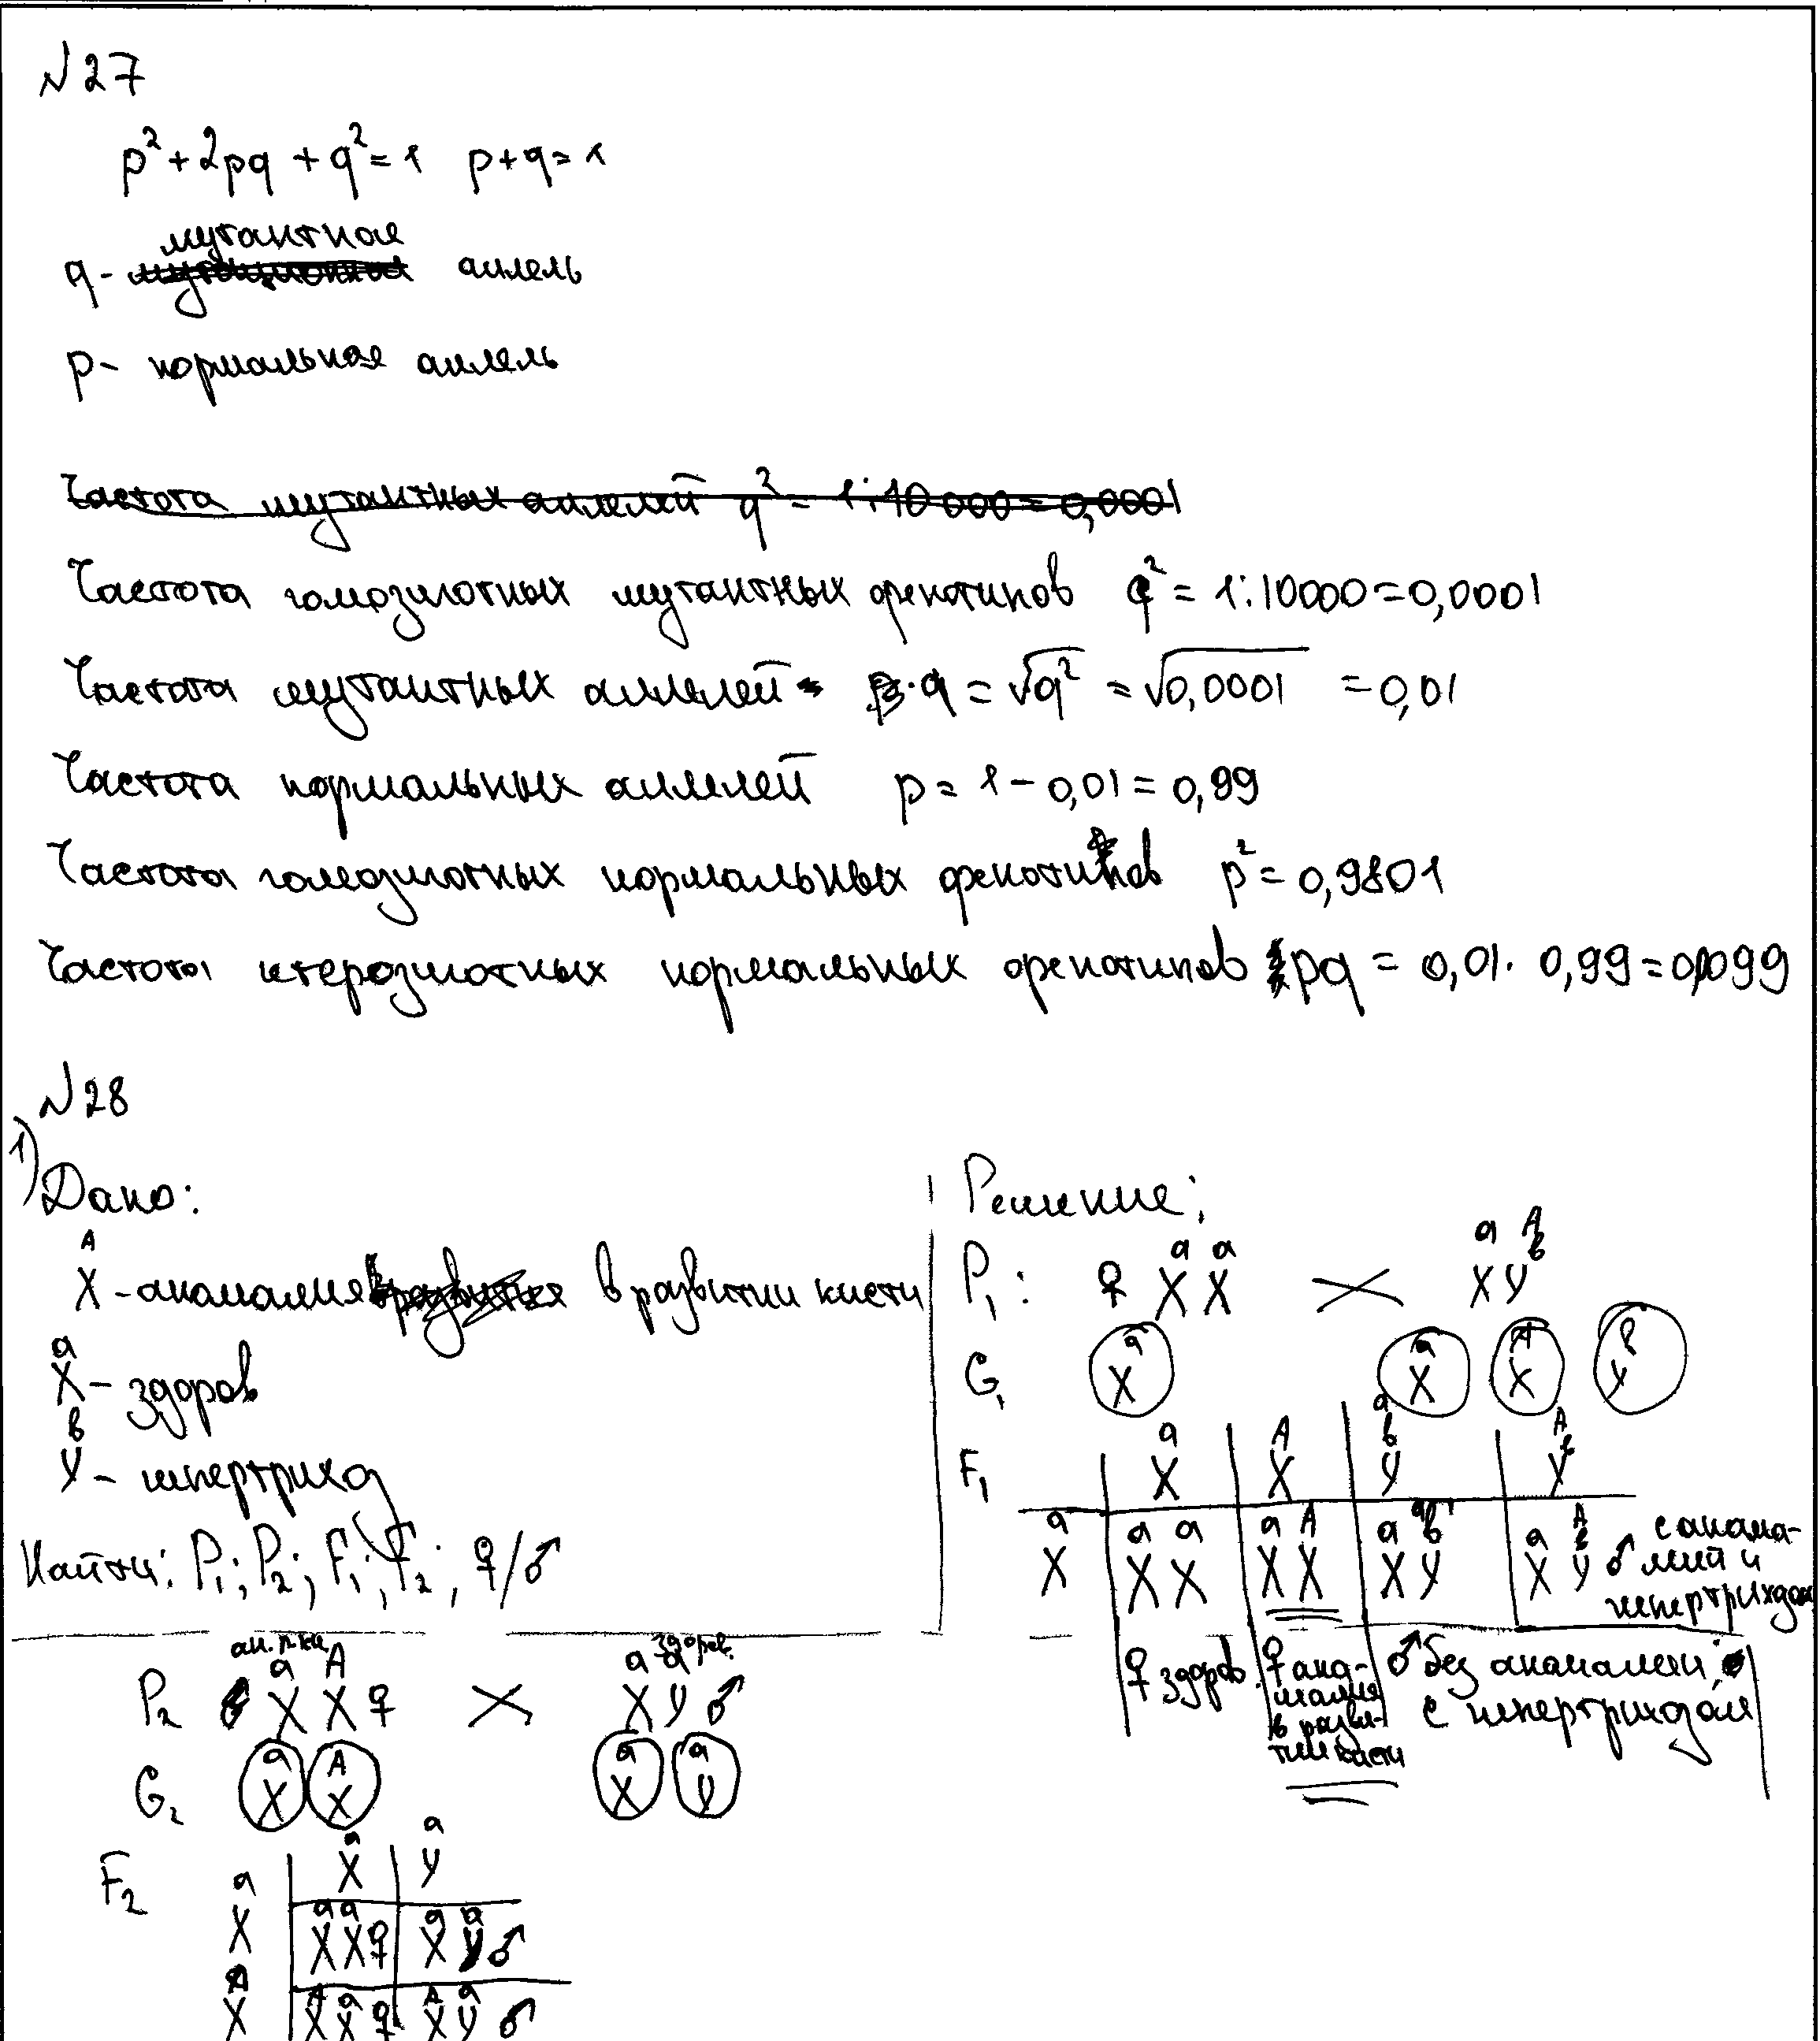 №27
p² + 2pq + q² = 1 p+q=1
мутантная
q - аллель
p - нормальная аллель
Частота мутантных аллелей q² = 1:10 000 = 0,0001
Частота гомозиготных мутантных фенотипов q² = 1:10000=0,0001
Частота мутантных аллелей q = √q² = √0,0001 = 0,01
Частота нормальных аллелей p = 1 - 0,01 = 0,99
Частота гомозиготных нормальных фенотипов p² = 0,9801
Частота гетерозиготных нормальных фенотипов pq = 0,01 · 0,99 = 0,0099
№28
1) Дано:
Xᴬ - аномалия в развитии кисти
Xᵃ - здоров
Yᵇ - гипертрихоз
Найти: P₁; P₂; F₁; F₂; ♀/♂
Решение:
P₁: ♀ XᵃXᵃ × XᵃYᴬᵇ
G₁ Xᵃ Xᵃ Xᴬ Y
F₁ Xᵃ Xᴬ Yᵃᵇ Yᴬᵇ
Xᵃ XᵃXᵃ XᵃXᴬ XᵃYᵃᵇ XᵃYᴬᵇ ♂ с анома-
лией и
гипертрихозом
♀ здоров. ♀ ано-
малия
в разви-
тии кисти
♂ без аномалии;
с гипертрихозом
здоров.
P₂ XᵃXᴬ ♀ × XᵃYᵃ ♂
G₂ Xᵃ Xᴬ Xᵃ Yᵃ
F₂ Xᵃ Yᵃ
Xᵃ XᵃXᵃ♀ XᵃYᵃ♂
Xᴬ XᴬXᵃ♀ XᴬYᵃ♂